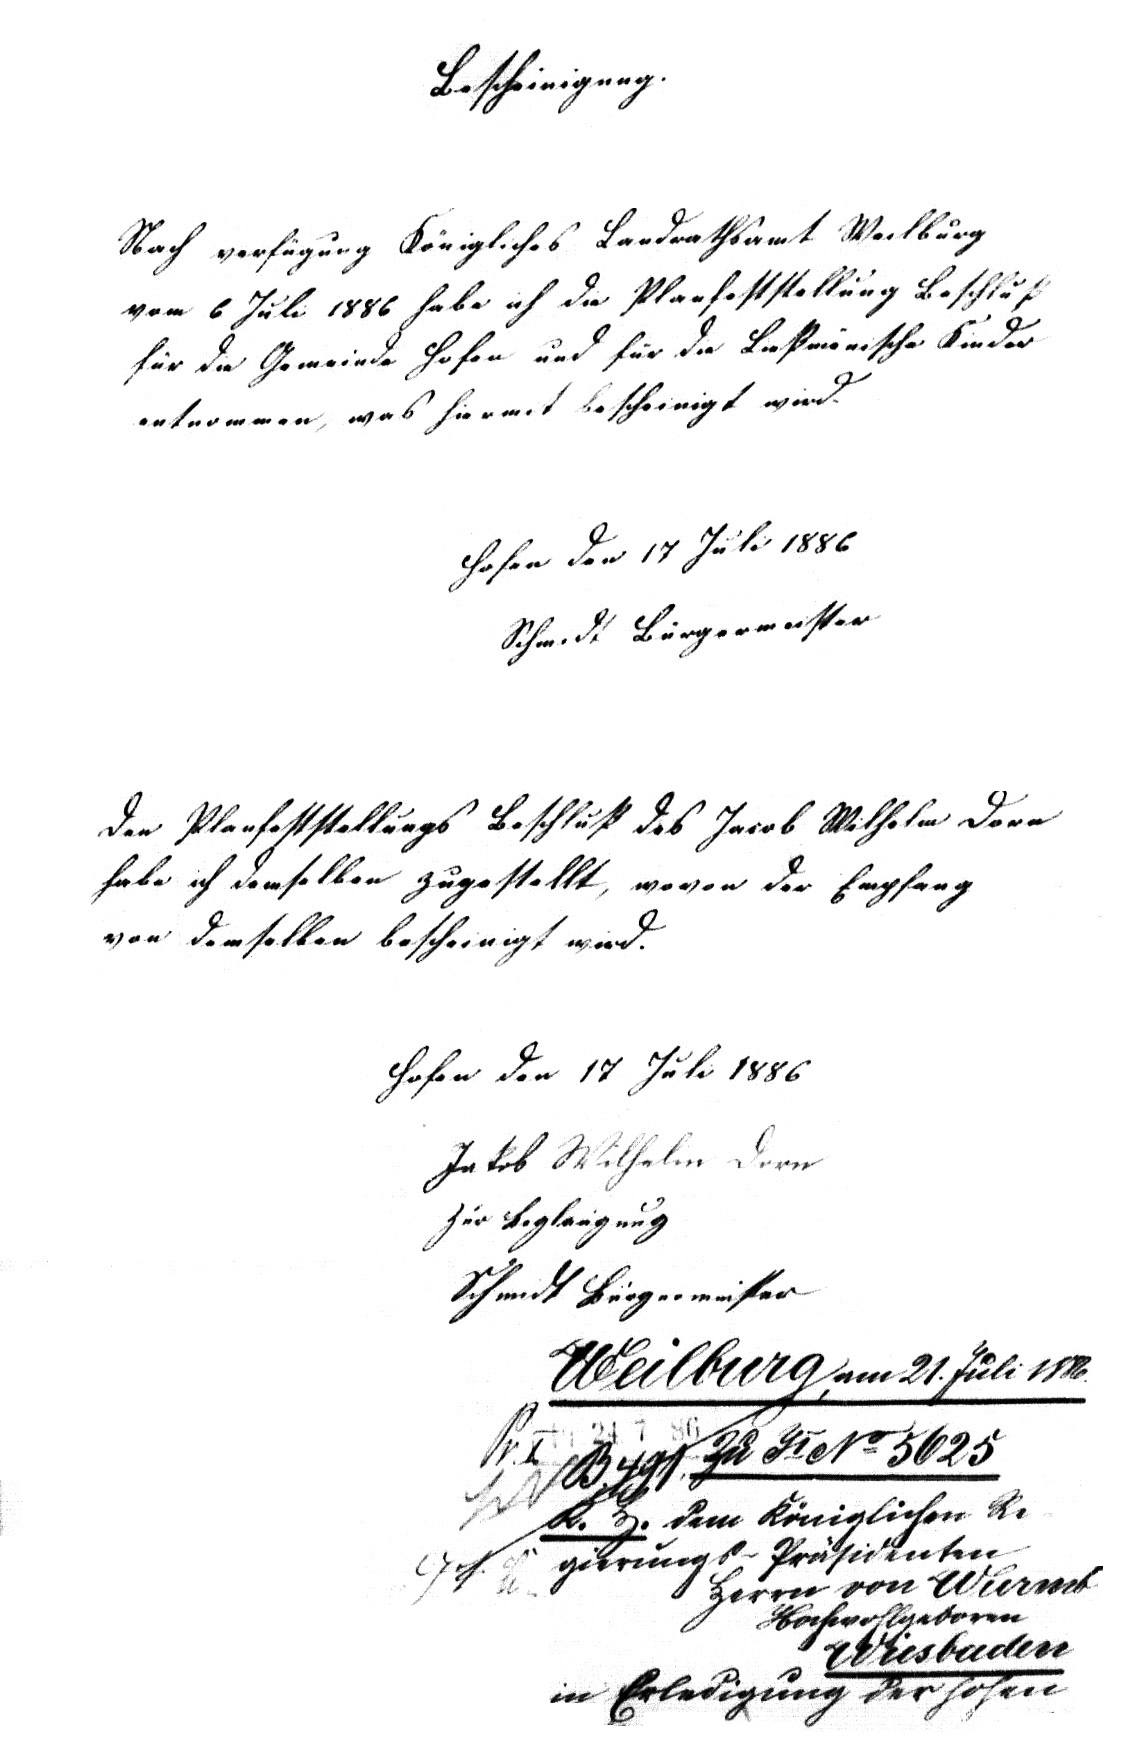 Bescheinigung.
Nach verfügung Königliches Landrathsamt Weilburg
vom 6 Juli 1886 habe ich die Planfeststellung Beschluß
für die Gemeinde Hofen und für die Kinder
entnommen, was hiermit bescheinigt wird.
Hofen den 17 Juli 1886
Schmidt Bürgermeister
Den Planfeststellungs Beschluß des Jacob Wilhelm Dorn
habe ich demselben zugestellt, wovon der Empfang
von demselben bescheinigt wird.
Hofen den 17 Juli 1886
Jakob Wilhelm Dorn
Zur Beglaigung
Schmidt Bürgermeister
Weilburg, am 21. Juli 1886.
Pr. I 24 7 86
zu No 5625
dem Königlichen Re
gierungs-Präsidenten
Herrn von Wurmb
Hochwohlgeboren
Wiesbaden
in Erledigung der hohen